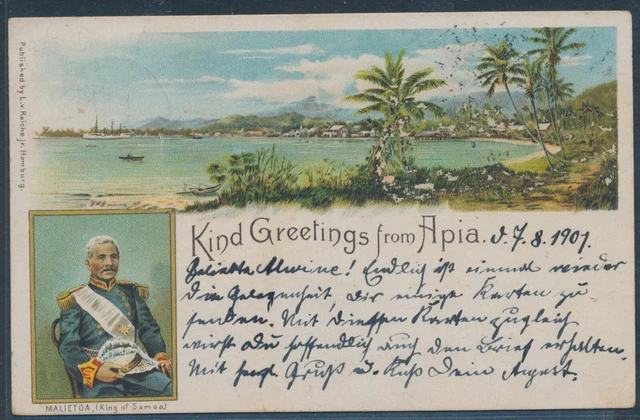 Published by L. v. Raiche jr. Hamburg.
Kind Greetings from Apia. d. 7.8.1901.
Geliebte Alwine! Endlich ist einmal wieder
die Gelegenheit, Dir einige Karten zu
senden. Mit diessen Karten zugleich
wirst Du hoffendlich auch den Brief erhalten.
Mit herzl. Gruß u. Kuß Dein August.
MALIETOA, (King of Samoa)